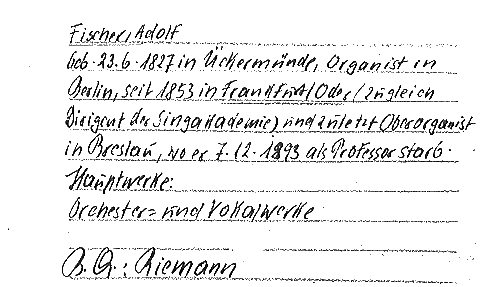 Fischer, Adolf
geb. 23.6.1827 in Ückermünde, Organist in
Berlin, seit 1853 in Frankfurt/Oder (zugleich
Dirigent der Singakademie) und zuletzt Oberorganist
in Breslau, wo er 7.12.1893 als Professor starb.
Hauptwerke:
Orchester= und Vokalwerke
B. Q.: Riemann